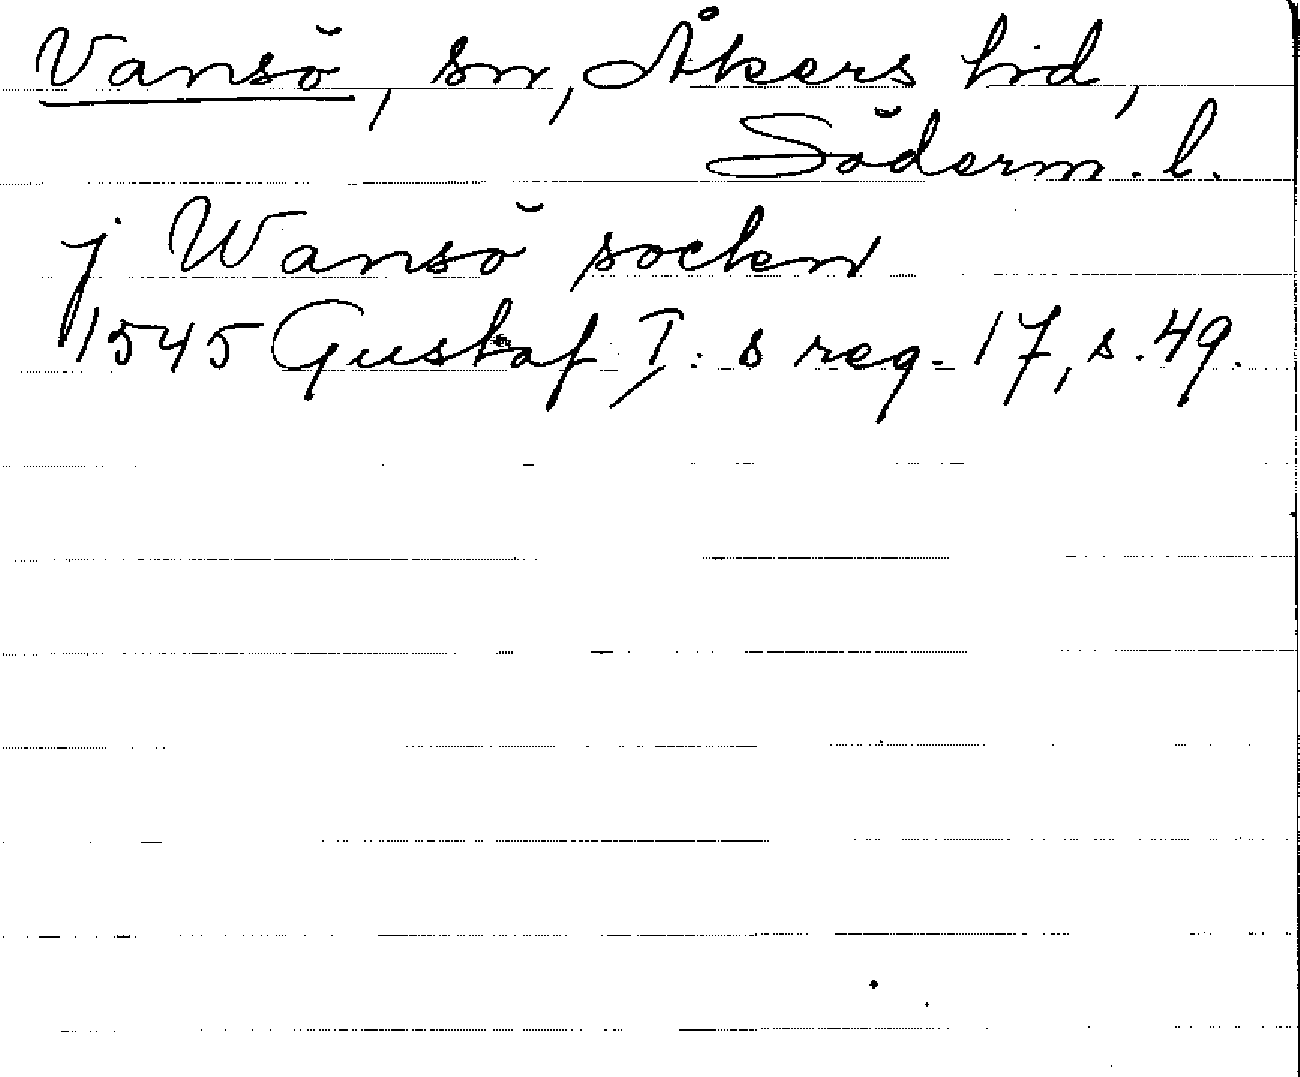 Vansö, sn, Åkers hd,
Söderm. l.
j Wansö socken
1545 Gustaf I: s reg. 17, s. 49.